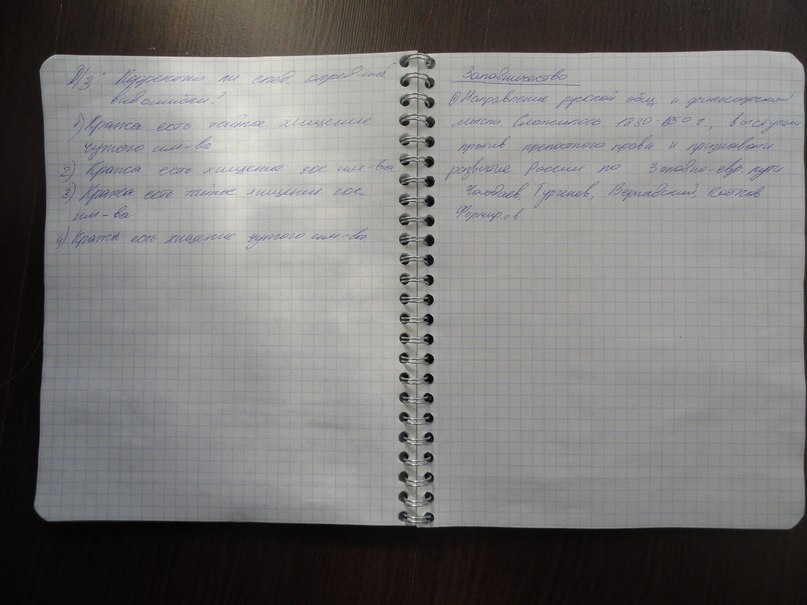 Д/З: Корректно ли след. опред-ния
1) Кража есть тайное хищение
чужого им-ва
2) Кража есть хищение гос. им-ва
3) Кража есть тайное хищение гос.
им-ва
4) Кража есть хищение чужого им-ва
Западничество
Направление русской общ. и философской
мысли сложилось 1830-1850 г., выступали
против крепостного права и признавали
развитие России по Западно-евр. пути
Чаадаев, Тургенев, Катков